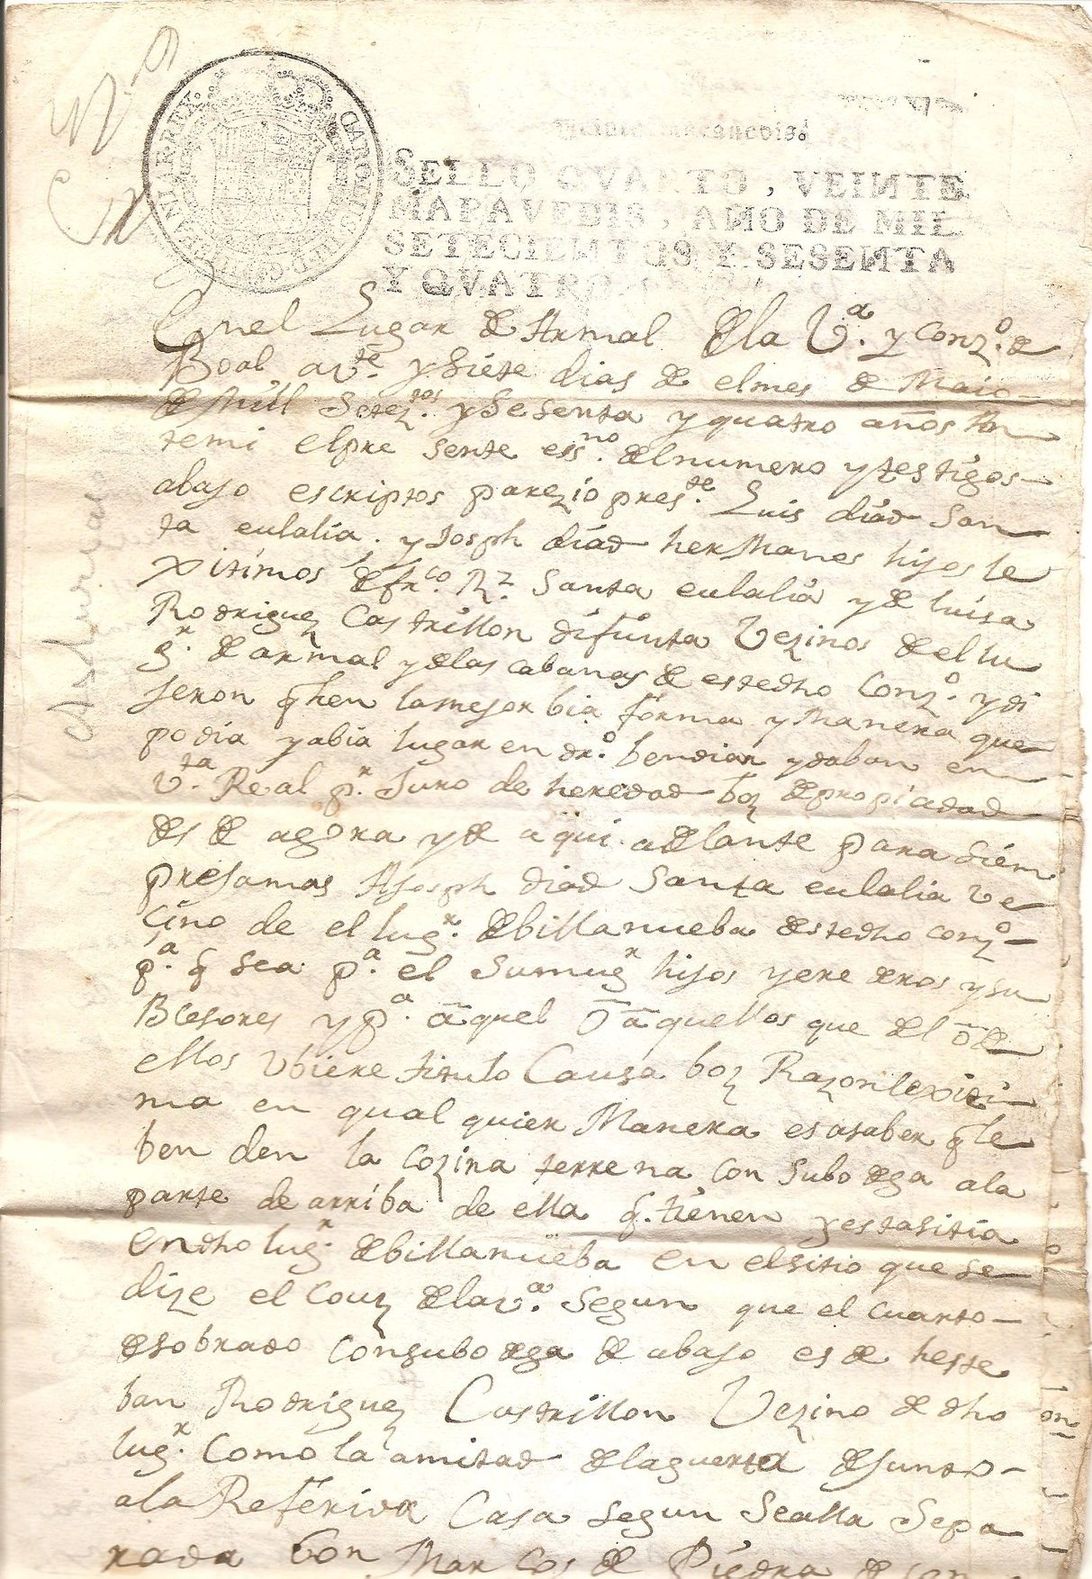 SELLO QVARTO, VEINTE
MARAVEDIS, AÑO DE MIL
SETECIENTOS Y SESENTA
Y QVATRO
Asturias
Enel Lugar de Armal de la Vª. y Conzº. de
Boal a vte. y siete dias de el mes de Maio
de Mill Setezos. y Sesenta y quatro años An
temi el pre sente essno. del numero y testigos
abajo escriptos parezio preste. Luis diad San
ta eulalia. y Joseph diad herManos hijos le
xitimos de frco. Rz. Santa eulalia y de luisa
Rodriguez Castrillon difunta Vezinos de el lu
gr. de armal y de las cabanas de este dho Conzº. y di
jeron qhen la mejor bia forma y Manera que
podia y abia lugar en drº. bendian y daban en
vta. Real pr. Juro de heredad boz de propiadad
des de agora y de a qui adelante para siem
prejamas AJoseph diad Santa eulalia ve
cino de el lugr. de billanueba deste dho conzº
pª. q sea pª. el Sumugr hijos y ere deros y su
Bcesores y pª. aquel o aquellos que de el o de
ellos ubiere titulo Causa boz Razon lexiti
ma en qual quier Manera es asaber q le
ben den la cozina terrena con subodega ala
parte de arriba de ella q. tienen y esta sitia
en dho lugr. de billanueba en el sitio que se
dize el Couz de la vª. Segun que el cuarto
de sobrado con subodega de abajo es de heste
ban Rodriguez Castrillon Vezino de dho
lugr. Como la amitad de la guerta de junto
ala Referida Casa segun Sealla Sepa
rada con Marcos de Piedra de sen